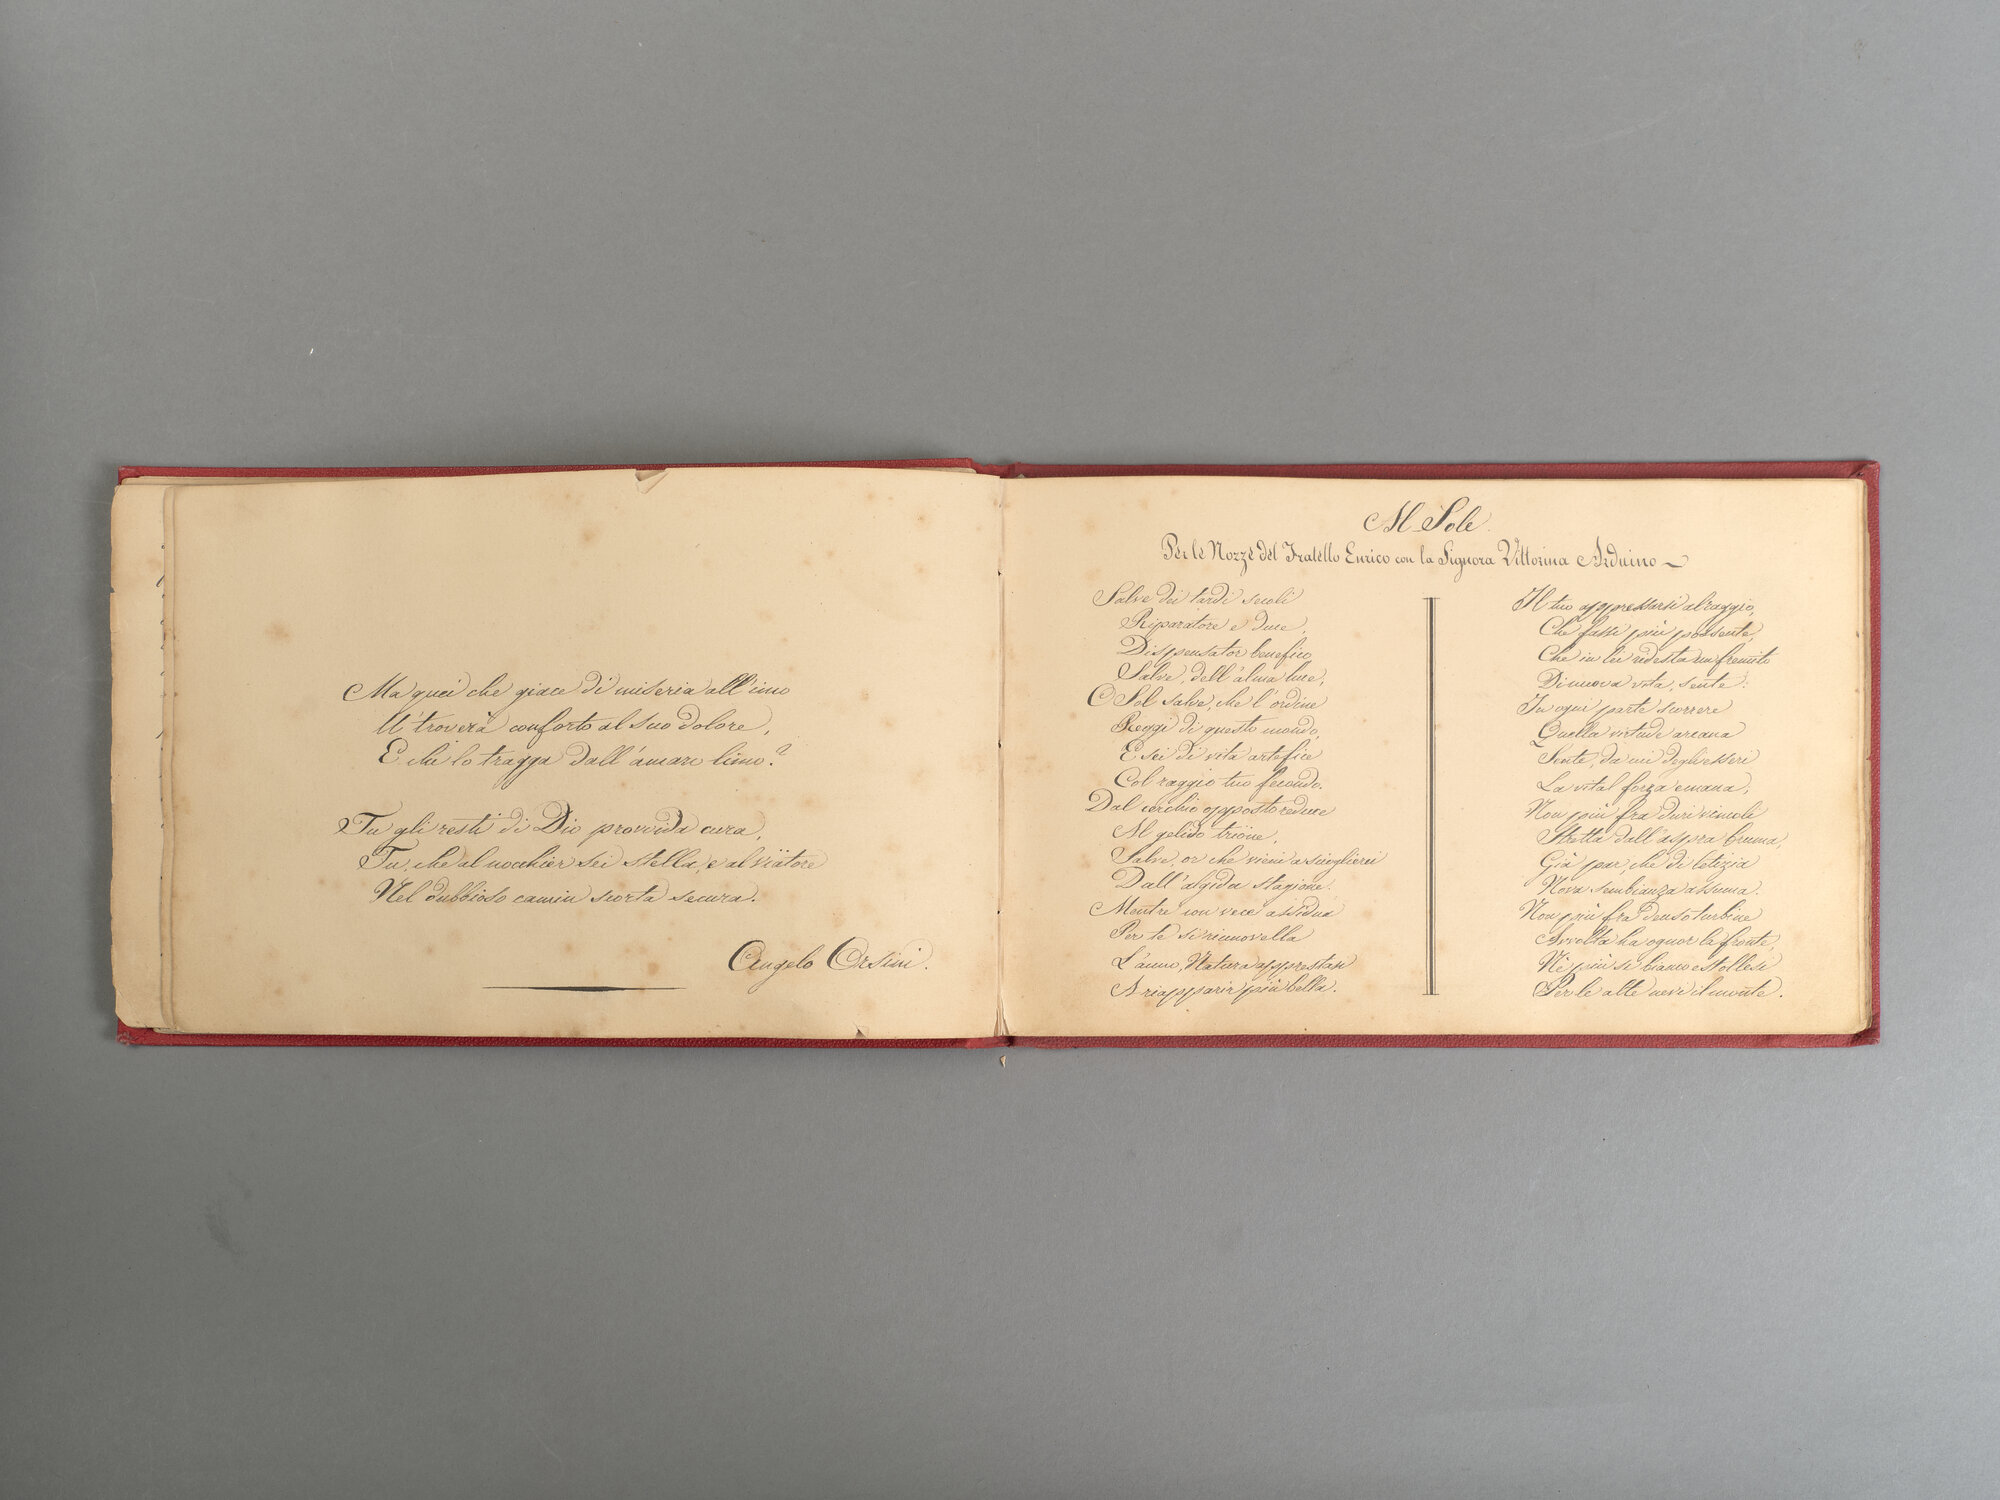 Ma quei che giace di miseria all'imo
U' troverà conforto al suo dolore,
E chi lo tragga dall'amaro limo?
Tu gli resti di Dio provvida cura,
Tu, che al nocchier sei stella, e al viatore
Nel dubbioso camin scorta secura.
Angelo Orsini.
Al Sole.
Per le Nozze del Fratello Enrico con la Signora Vittorina Arduino
Salve dei tardi secoli
Riparatore e duce,
Dispensator benefico
Salve, dell'alma luce,
O Sol salve, che l'ordine
Reggi di questo mondo,
E sei di vita artefice
Col raggio tuo fecondo.
Dal cerchio opposto reduce
Al gelido trione,
Salve, or che vieni a scioglierci
Dall'algida stagione.
Mentre con vece assidua
Per te si rinnovella
L'anno, Natura apprestasi
A riapparir più bella.
Al tuo appressarsi al raggio,
Che fassi più possente,
Che in lei ridesta un fremito
Di nuova vita, sente:
In ogni parte scorrere
Quella virtude arcana
Sente, da cui degli esseri
La vital forza emana,
Non più fra duri vincoli
Stretta dall'aspra bruma,
Già par, che di letizia
Nova sembianza assuma.
Non più fra denso turbine
Avvolta ha ognor la fronte,
Nè più si bianco estollesi
Per le alte nevi il monte.